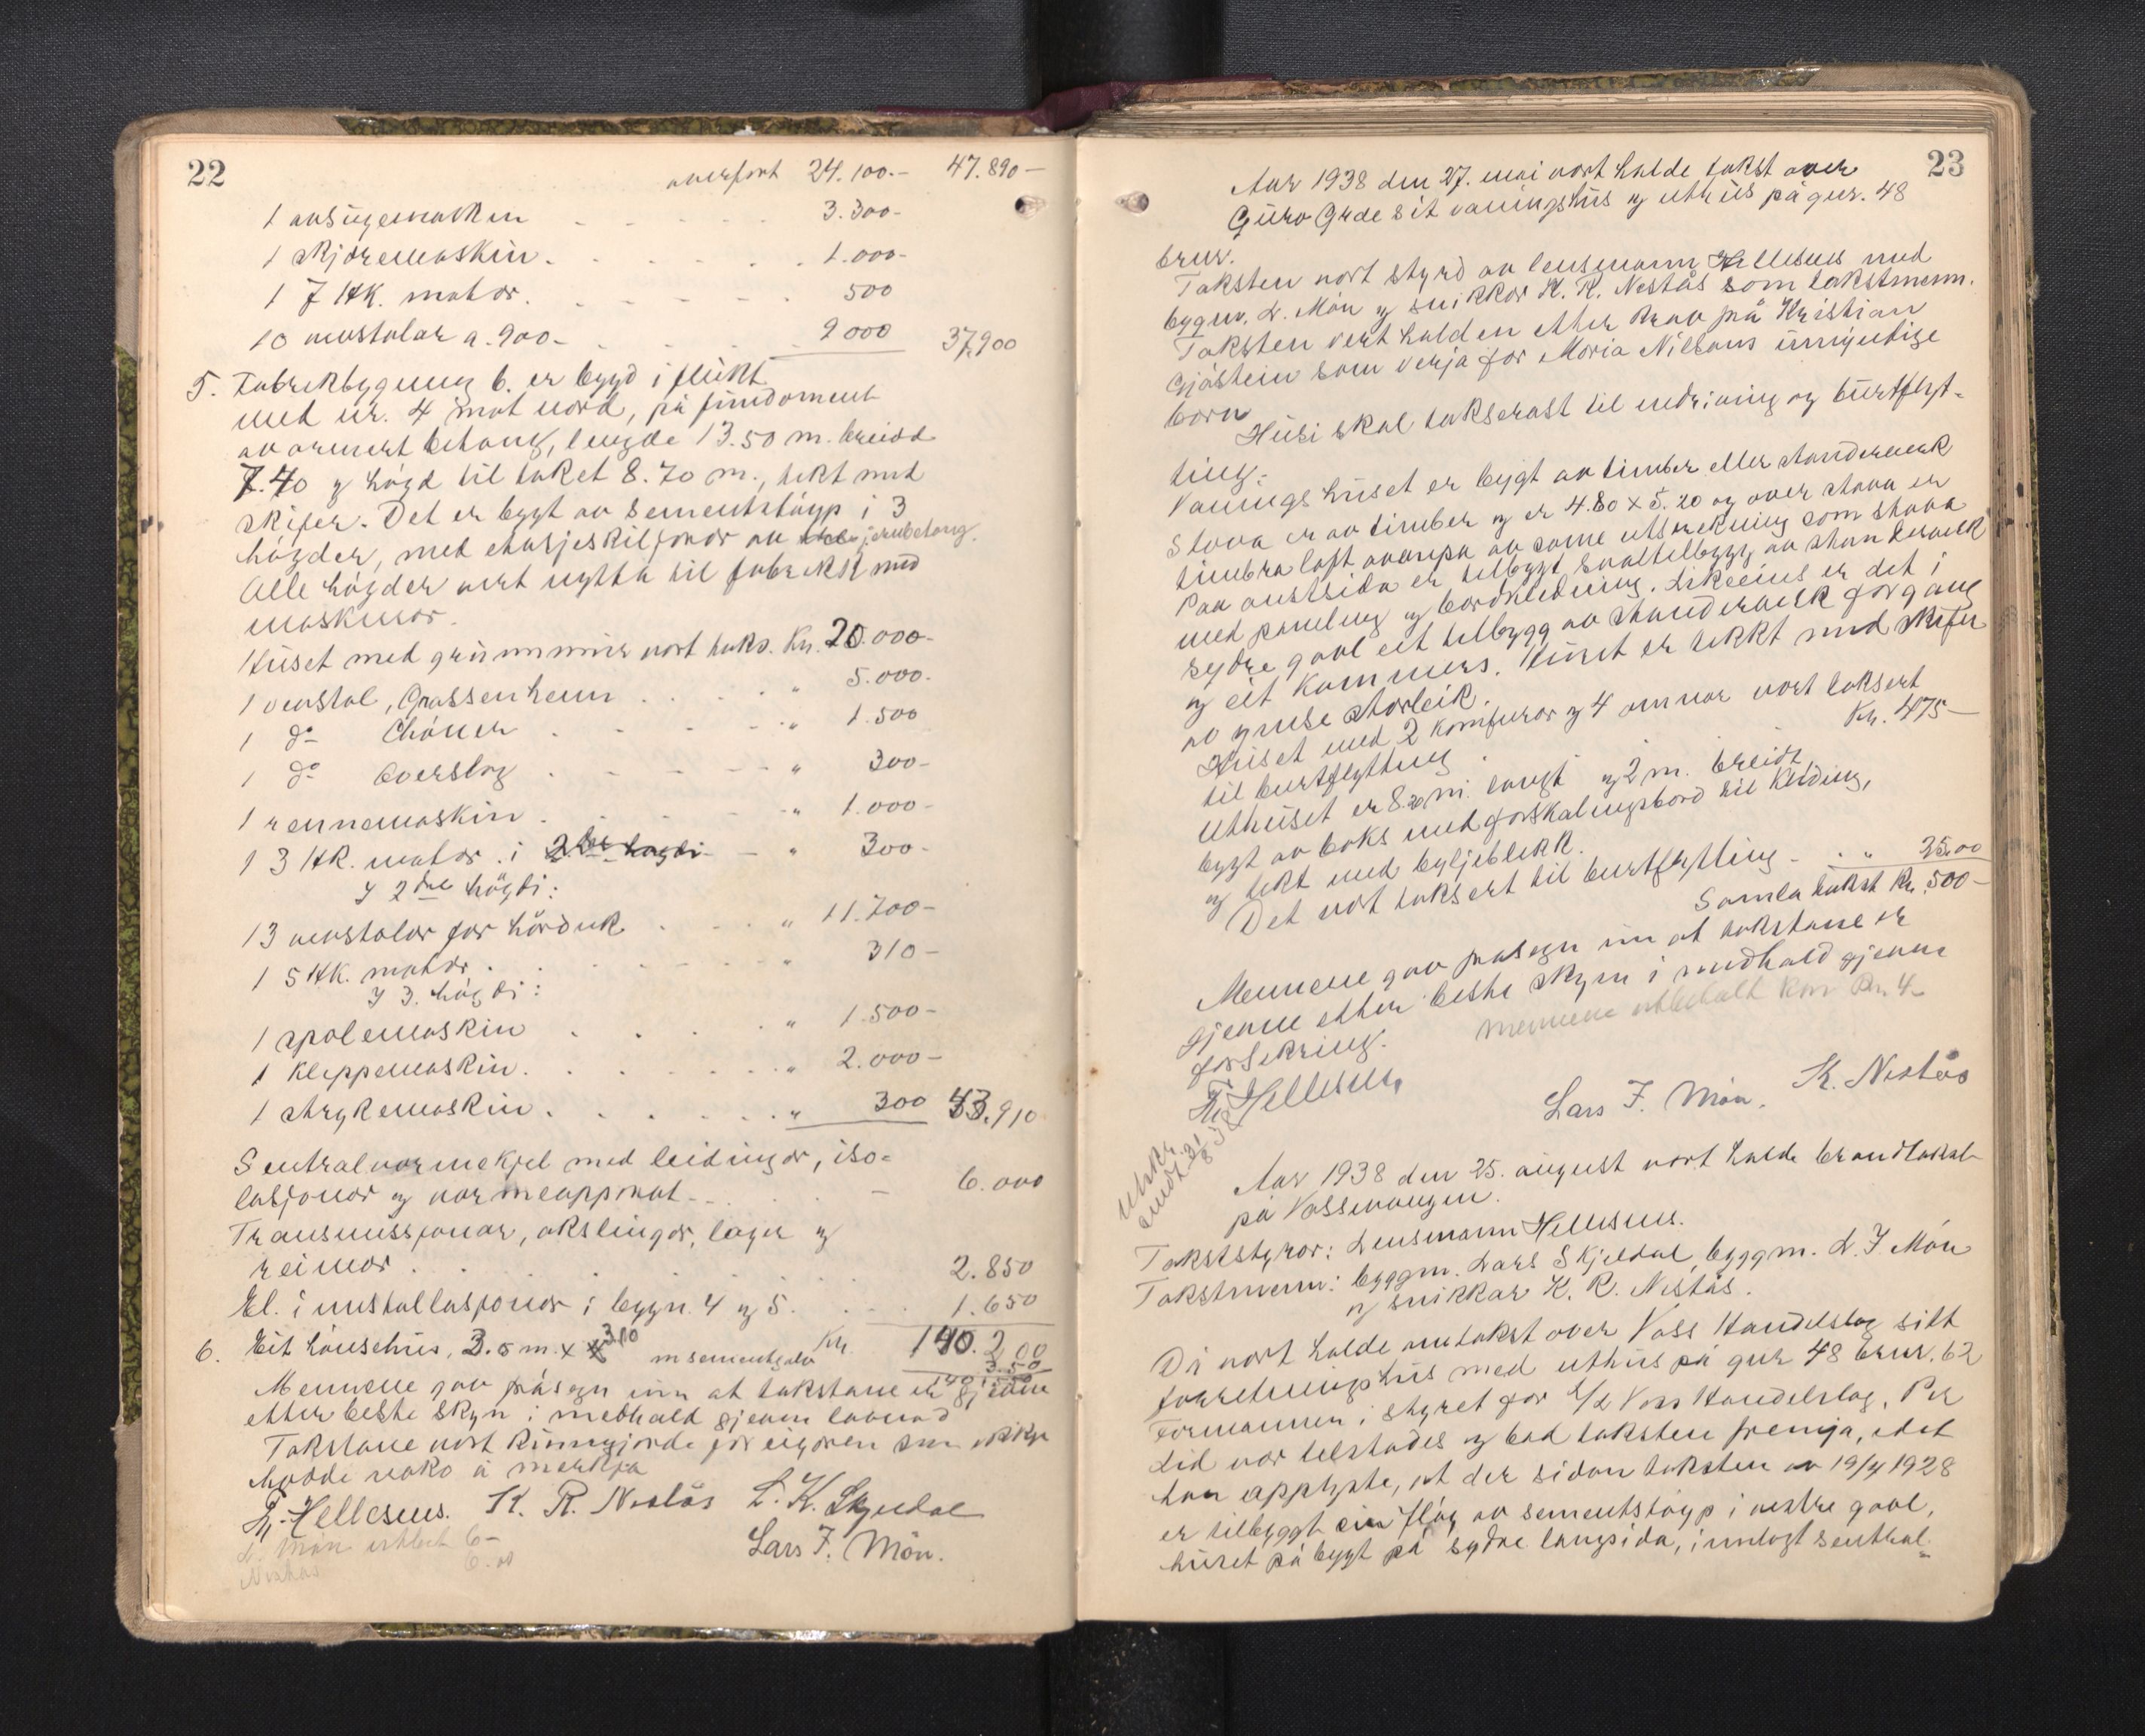 22
overført 24.100.- 47.890 -
1 avsugemaskin 3.300-
1 skjoremaskin. 1.000-
1 7 HK. motor. 500
10 vevstolar a. 900- 9 000 37,900
5. Fabrikbygning 6. er bygd i flukt
med nr. 4 mot nord, på fundament
av armert betong, lengde 13.50 m. breidd
7.40 og høgd til taket 8.70 m., tekt med
skifer. Det er bygt av sementstøyp i 3
høgder, med etasjeskiljonar av jernbetong.
Alle høgder vert nytta til fabrikk med
maskinar.
Huset med grunnmur vort taks. Kr. 20.000-
1 vevstol, Grossenheun " 5.000-
1 do Chöner " 1.500
1 do Overslag " 300-
1 rennemaskin " 1.000-
1 3 HK. motor. i 2dre høgdi " 300-
I 2dre høgdi:
13 vevstolar for hörduk " 11.700-
1 5 HK. motor. " 310-
I 3. høgdi:
1 spolemaskin " 1.500-
1 klippemaskin. " 2.000-
1 strykemaskin. " 300 43.910
Sentralvarmekjel med leidingar, iso-
lasjonar og varmeapparat 6.000
Transmissjonar, akslingar, lager og
reimar 2.850
El. installasjonar i bygn. 4 og 5. 1.650
6. Eit hönsehus, 3.5 m. x 310 m sementgolv Kr. 140.200
350
Mennene gav påsegn um at takstane er gjevne
etter beste skyn i medhald gjevne lovnad
Takstane vort kunngjorde for eigaren som ikkje
hadde noko å merkja
Hellesnes. K. R. Nestås L. K. Skjeldal
Lars F. Møn.
L. Møn utbet 6-
Nestås 6.00
23
Aar 1938 den 27. mai vort halde takst over
Guro Gjerde sit vaaningshus og uthus på gnr. 48
brnr.
Taksten vort styrd av lensmann Hellesnes med
bygnv. L. Møn og snikkar K. R. Nestås som takstmenn.
Taksten vert halden etter krav frå Kristian
Gjøstein som verja for Maria Nilsens umyndige
born
Husi skal takserast til nedriving og burtflyt-
ting:
Vaaningshuset er bygt av timber eller standerverk
Stova er av timber og er 4.80 x 5.20 og over stova er
timbra loft ovanpa av same utstrekning som stova
Paa austsida er tilbygt svaltilbygg av standerverk
med paneling og bordkledning. Likeeins er det i
sydre gavl eit tilbygg av standerverk for gang
og eit kammers. Huset er tekkt med skifer
av ymse storleik.
Huset med 2 komfurar og 4 omnar vort taksert
til burtflytting Kr. 475-
Uthuset er 8.20 m. langt og 2 m. breidt,
bygt av boks med forskalingsbord til kleding,
og tekt med bylgjeblekk.
Det vort taksert til burtflytting " 25.00
Samla takst Kr. 500-
Mennene gav påsegn um at takstane er
gjevne etter beste skyn i medhald gjevne
forsikring.
mennene utbetalt kvar Kr. 4-
Hellesnes
Lars F. Møn. K. Nestås
Utskr.
sendt 31/8 38
Aar 1938 den 25. august vort halde brandtakst
på Vossevangen.
Takststyrar: Lensmann Hellesnes.
Takstmenn: byggm. Lars Skjeldal, byggm. L. F. Møn
og snikkar K. R. Nestås.
Då vort halde omtakst over Voss Handelslag sitt
forretningshus med uthus på gnr 48 brnr. 62
Formannen i styret for S/L Voss Handelslag, Per
Lid var tilstades og bad taksten fremja, idet
han opplyste, at der sidan taksten av 19/4 1928
er tilbyggt ein fløy av sementstøyp i vestre gavl,
huset påbygt på sydre langsida, innlagt sentral-